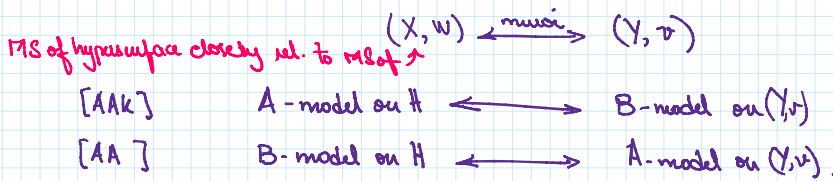 (X, W) ⟷ mirror (Y, v)
MS of hypersurface closely rel. to MS of ↗
[AAK] A-model on H ⟷ B-model on (Y,v)
[AA] B-model on H ⟷ A-model on (Y,v)